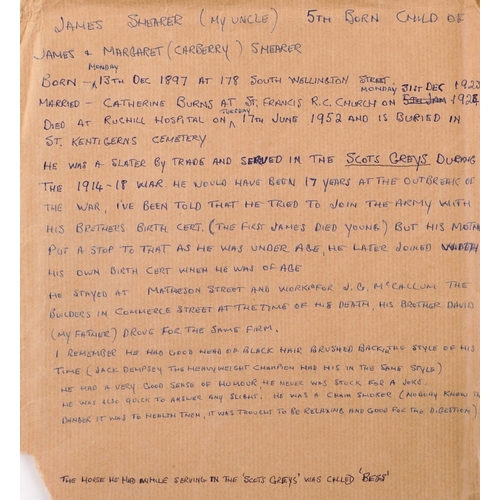 JAMES SHEARER (MY UNCLE) 5TH BORN CHILD OF
JAMES & MARGARET (CARBERRY) SHEARER
MONDAY
BORN - 13TH DEC 1897 AT 178 SOUTH WELLINGTON STREET.
MONDAY 31ST DEC 1923
MARRIED - CATHERINE BURNS AT ST. FRANCIS R.C. CHURCH ON 5TH JAN 192
TUESDAY
DIED AT RUCHILL HOSPITAL ON 17TH JUNE 1952 AND IS BURIED IN
ST. KENTIGERNS CEMETERY
HE WAS A SLATER BY TRADE AND SERVED IN THE SCOTS GREYS DURING
THE 1914-18 WAR. HE WOULD HAVE BEEN 17 YEARS AT THE OUTBREAK OF
THE WAR, I'VE BEEN TOLD THAT HE TRIED TO JOIN THE ARMY WITH
HIS BROTHERS BIRTH CERT. (THE FIRST JAMES DIED YOUNG) BUT HIS MOTHE
PUT A STOP TO THAT AS HE WAS UNDER AGE, HE LATER JOINED
HIS OWN BIRTH CERT WHEN HE WAS OF AGE
HE STAYED AT MATHESON STREET AND WORKS FOR J.G. McCALLUM THE
BUILDERS IN COMMERCE STREET AT THE TIME OF HIS DEATH, HIS BROTHER DAVID
(MY FATHER) DROVE FOR THE SAME FIRM.
I REMEMBER HE HAD GOOD HEAD OF BLACK HAIR BRUSHED BACK, THE STYLE OF HIS
TIME (JACK DEMPSEY THE HEAVYWEIGHT CHAMPION HAD HIS IN THE SAME STYLE)
HE HAD A VERY GOOD SENSE OF HUMOUR HE NEVER WAS STUCK FOR A JOKE.
HE WAS ALSO QUICK TO ANSWER ANY SLIGHT. HE WAS A CHAIN SMOKER (NOBODY KNEW TH
DANGER IT WAS TO HEALTH THEN, IT WAS THOUGHT TO BE RELAXING AND GOOD FOR THE DIGESTION)
THE HORSE HE HAD WHILE SERVING IN THE 'SCOTS GREYS' WAS CALLED 'BESS'